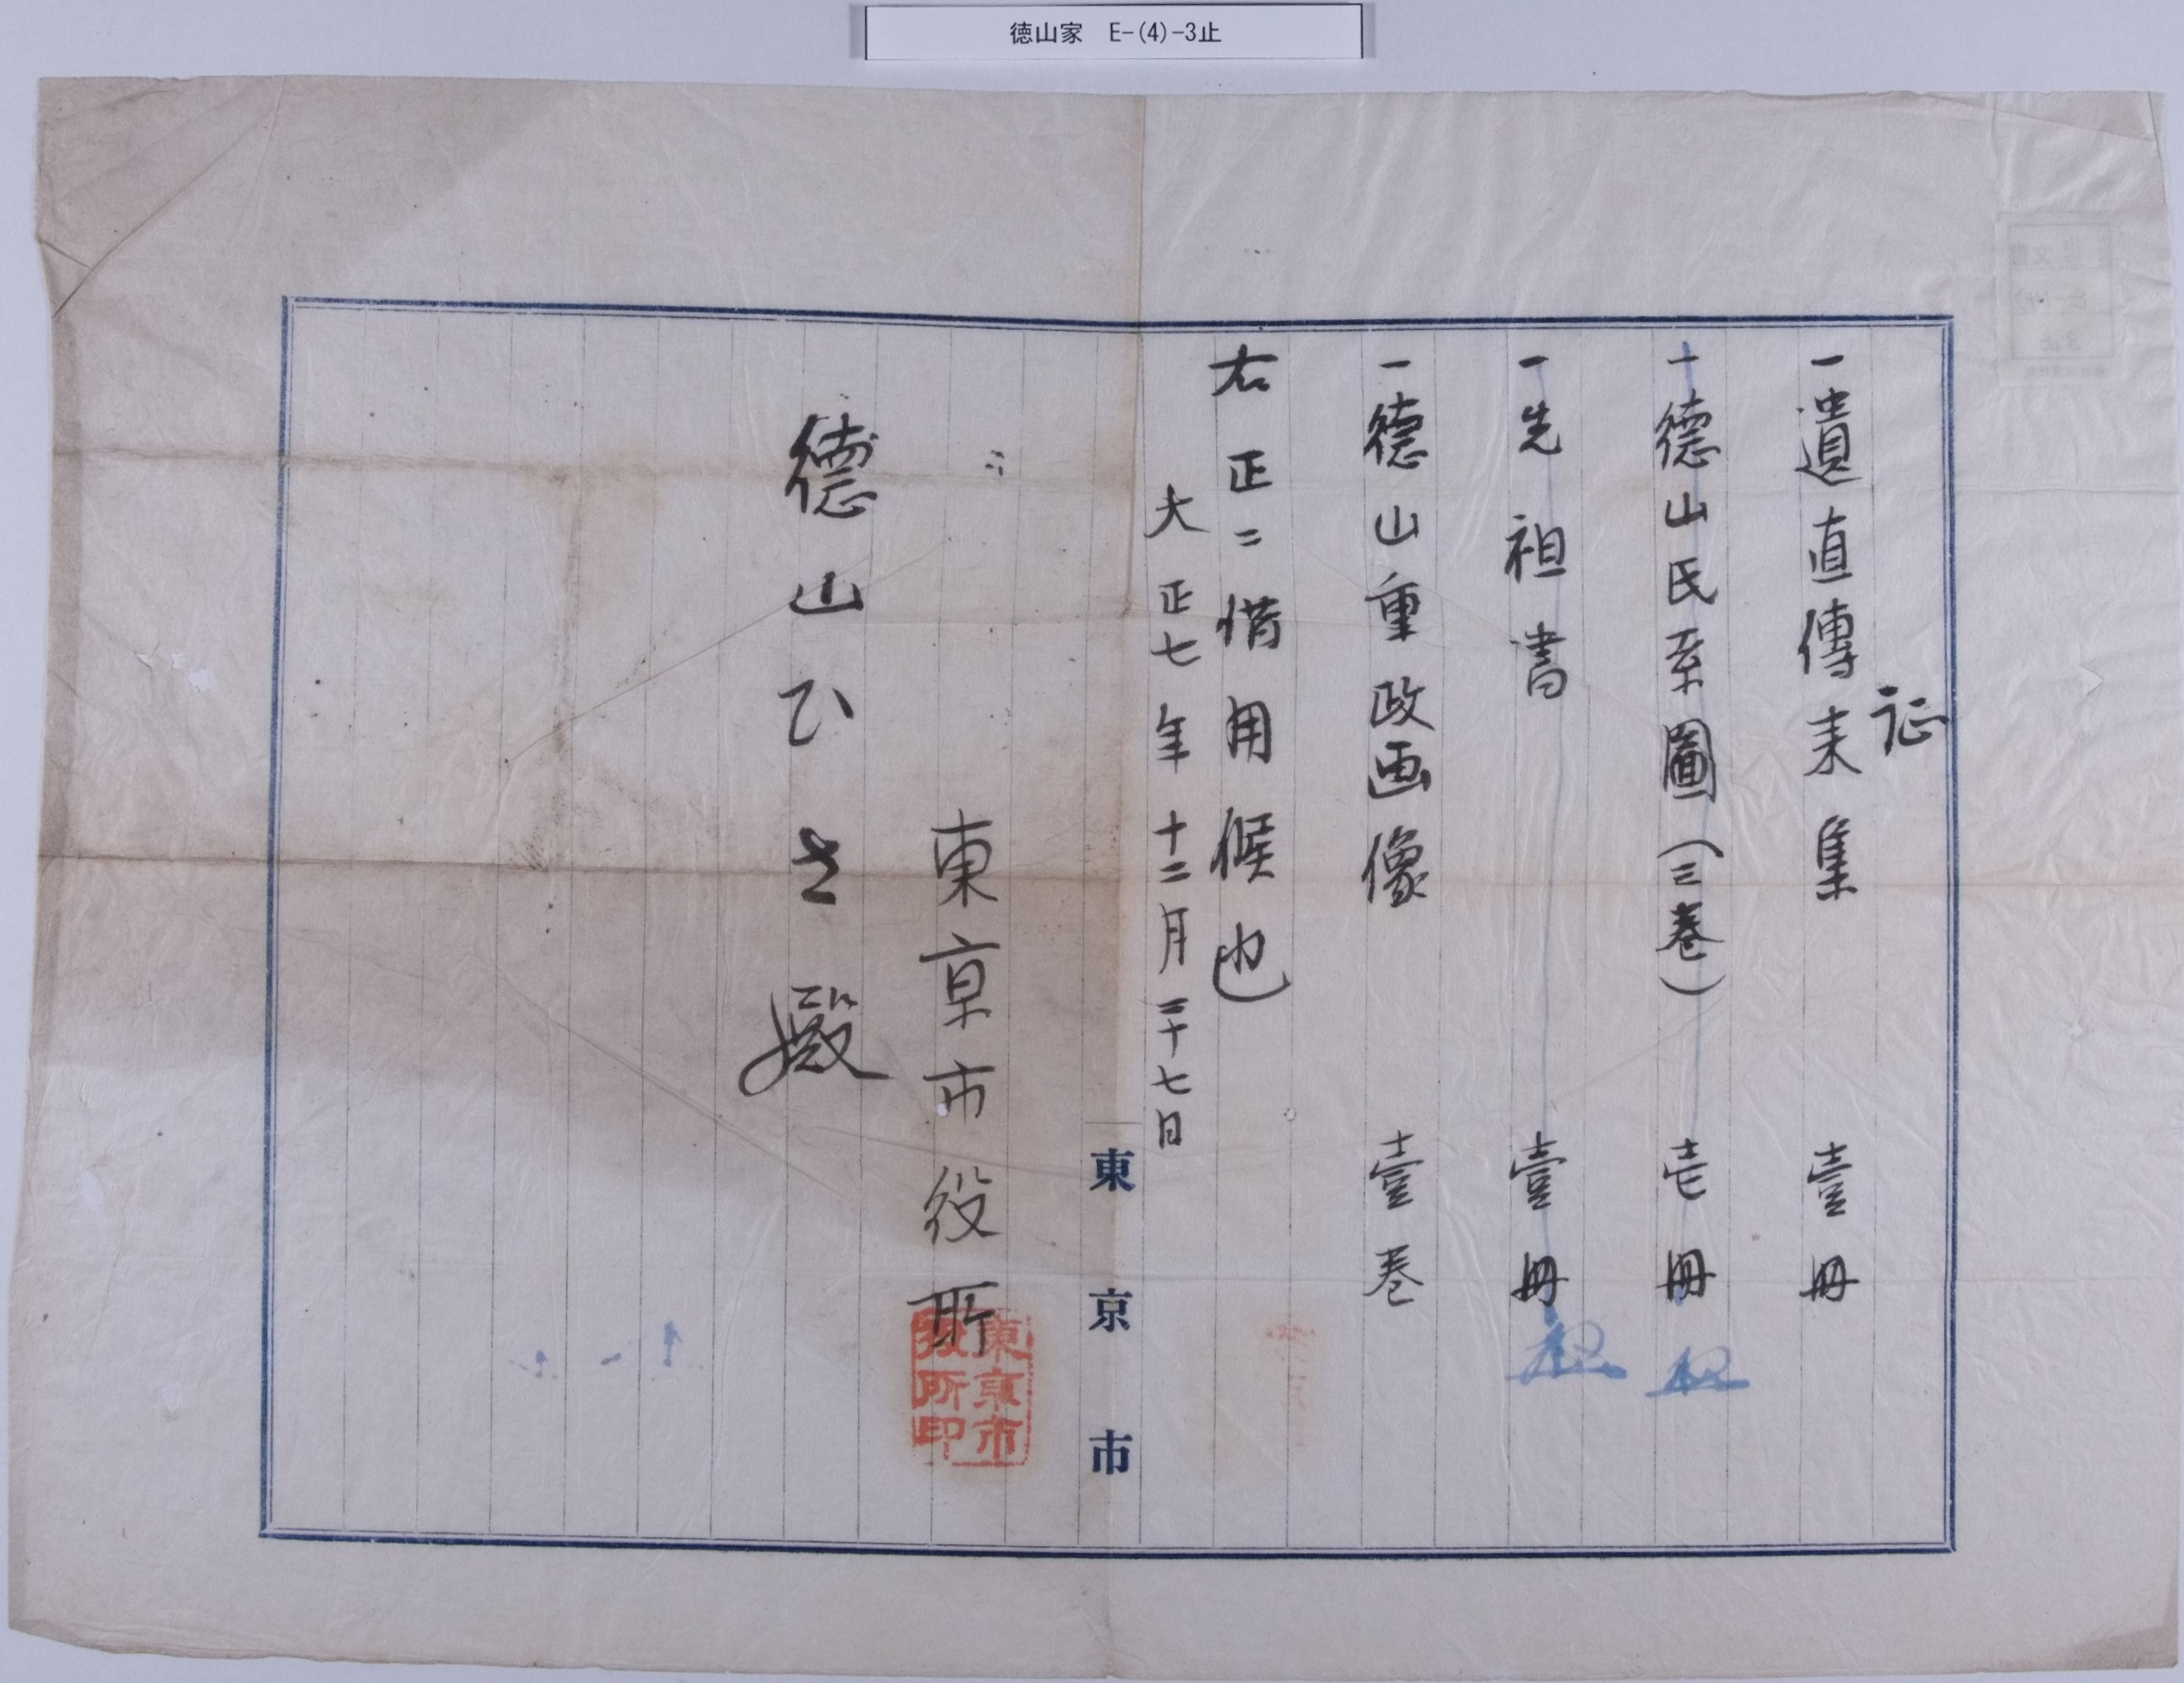 徳山家 E-(4)-3止
証
一遺直傳来集 壹冊
一德山氏系圖(三巻) 壱冊
一先祖書 壹冊
一德山重政画像 壹巻
右正ニ借用候也
大正七年十二月二十七日
東京市
東京市役所
東京市役所印
德山ひさ殿